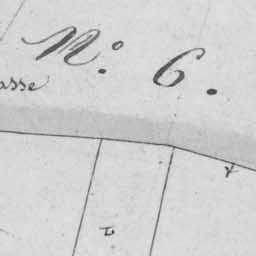 N.º 6.
asse